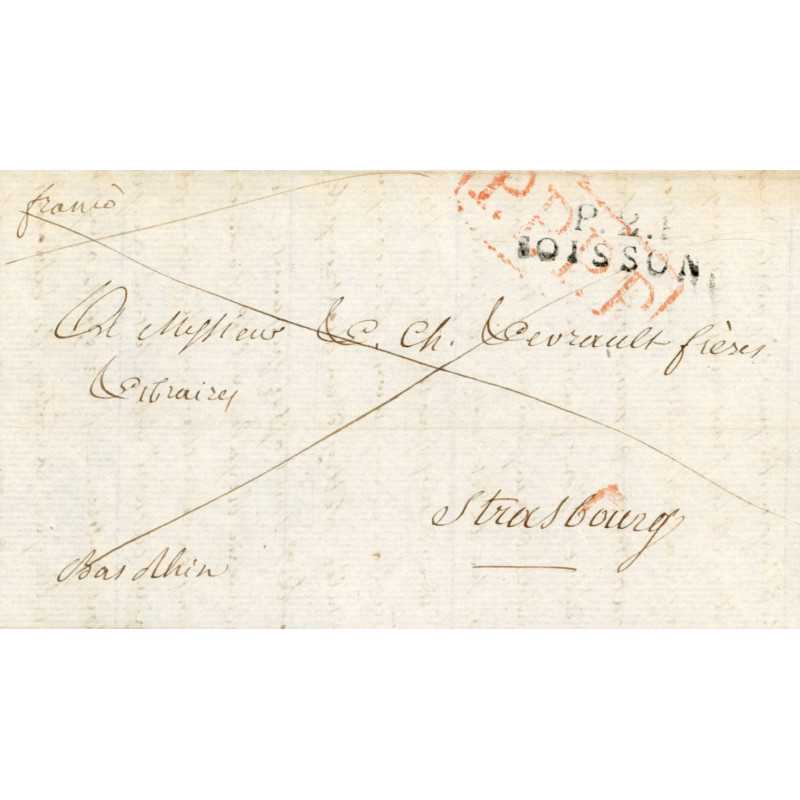 franco
P.P.P.P.
P. 2. P
SOISSON
A Messieurs L. Ch. Levrault frères
Libraires
Strasbourg
Bas Rhin